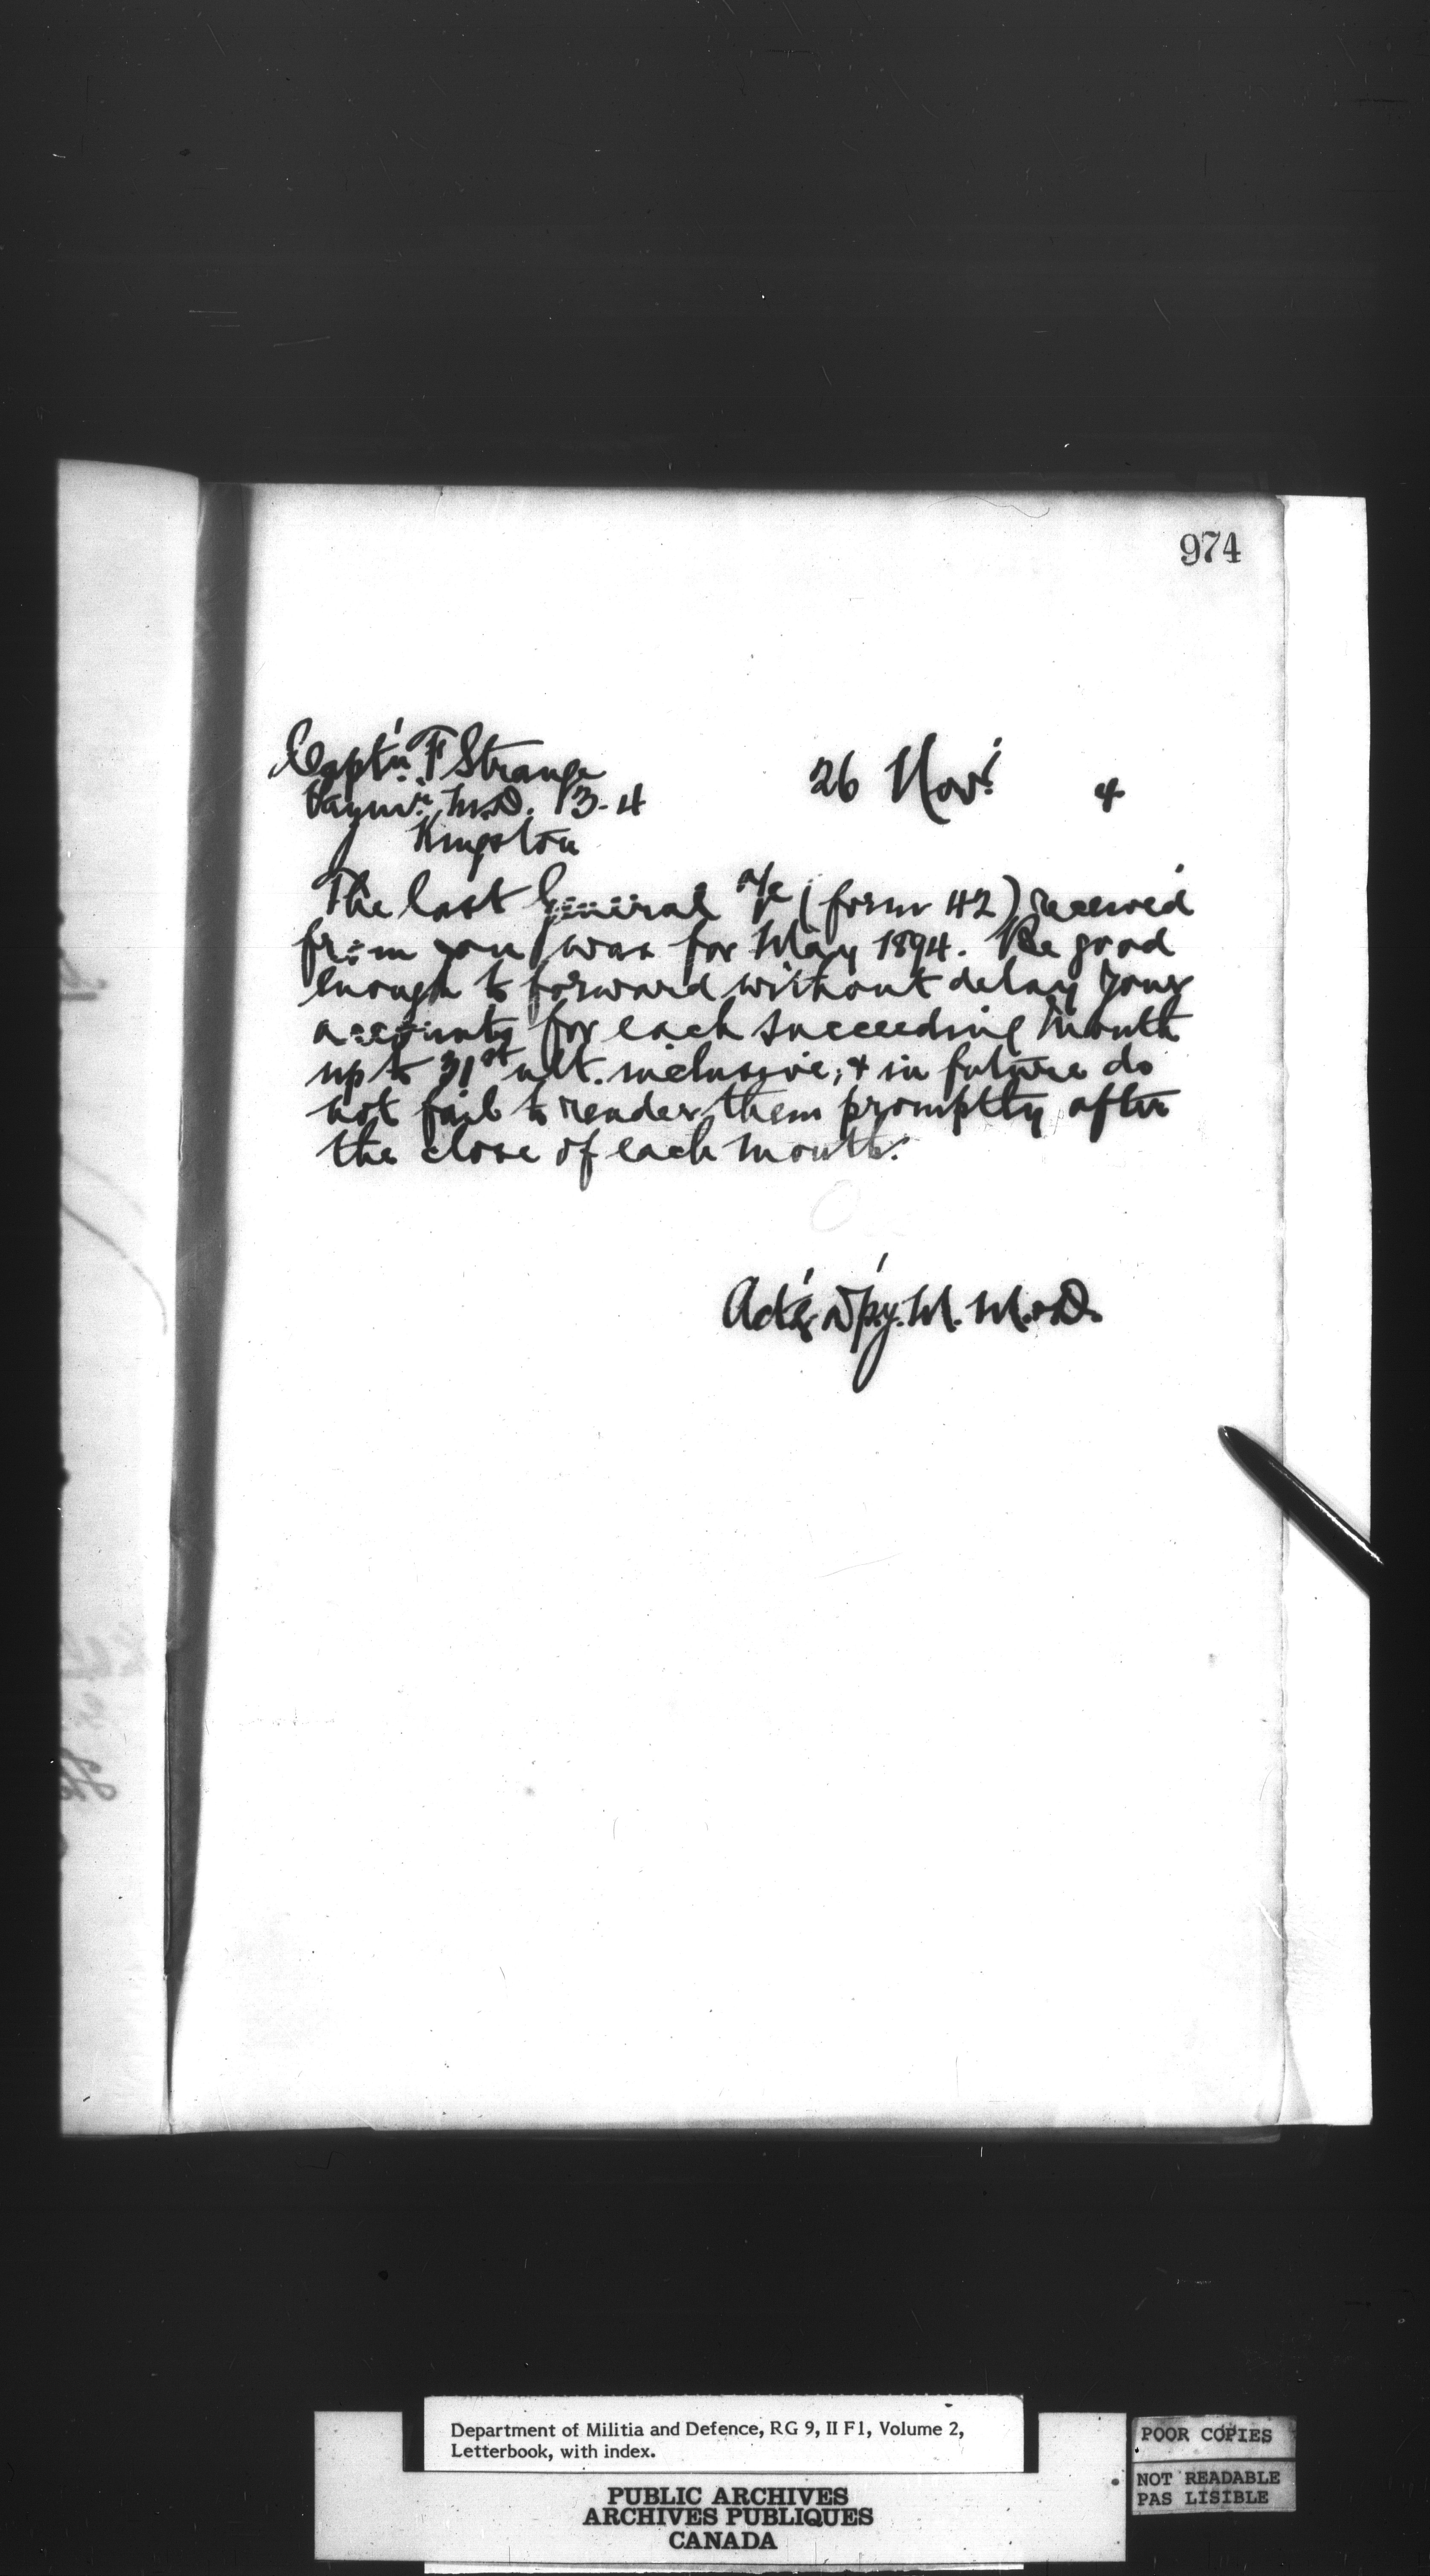 974
Capt'n. F Strange
Paymr. M.D. 3-4
Kingston
26 Nov' 4
The last General a/c (form 42) received
from you was for May 1894. Be good
enough to forward without delay your
accounts for each succeeding month
up to 31st ult. inclusive, & in future do
not fail to render them promptly after
the close of each month.
Act'g D'py. M. M. & D.
Department of Militia and Defence, RG 9, II F1, Volume 2,
Letterbook, with index.
PUBLIC ARCHIVES
ARCHIVES PUBLIQUES
CANADA
POOR COPIES
NOT READABLE
PAS LISIBLE